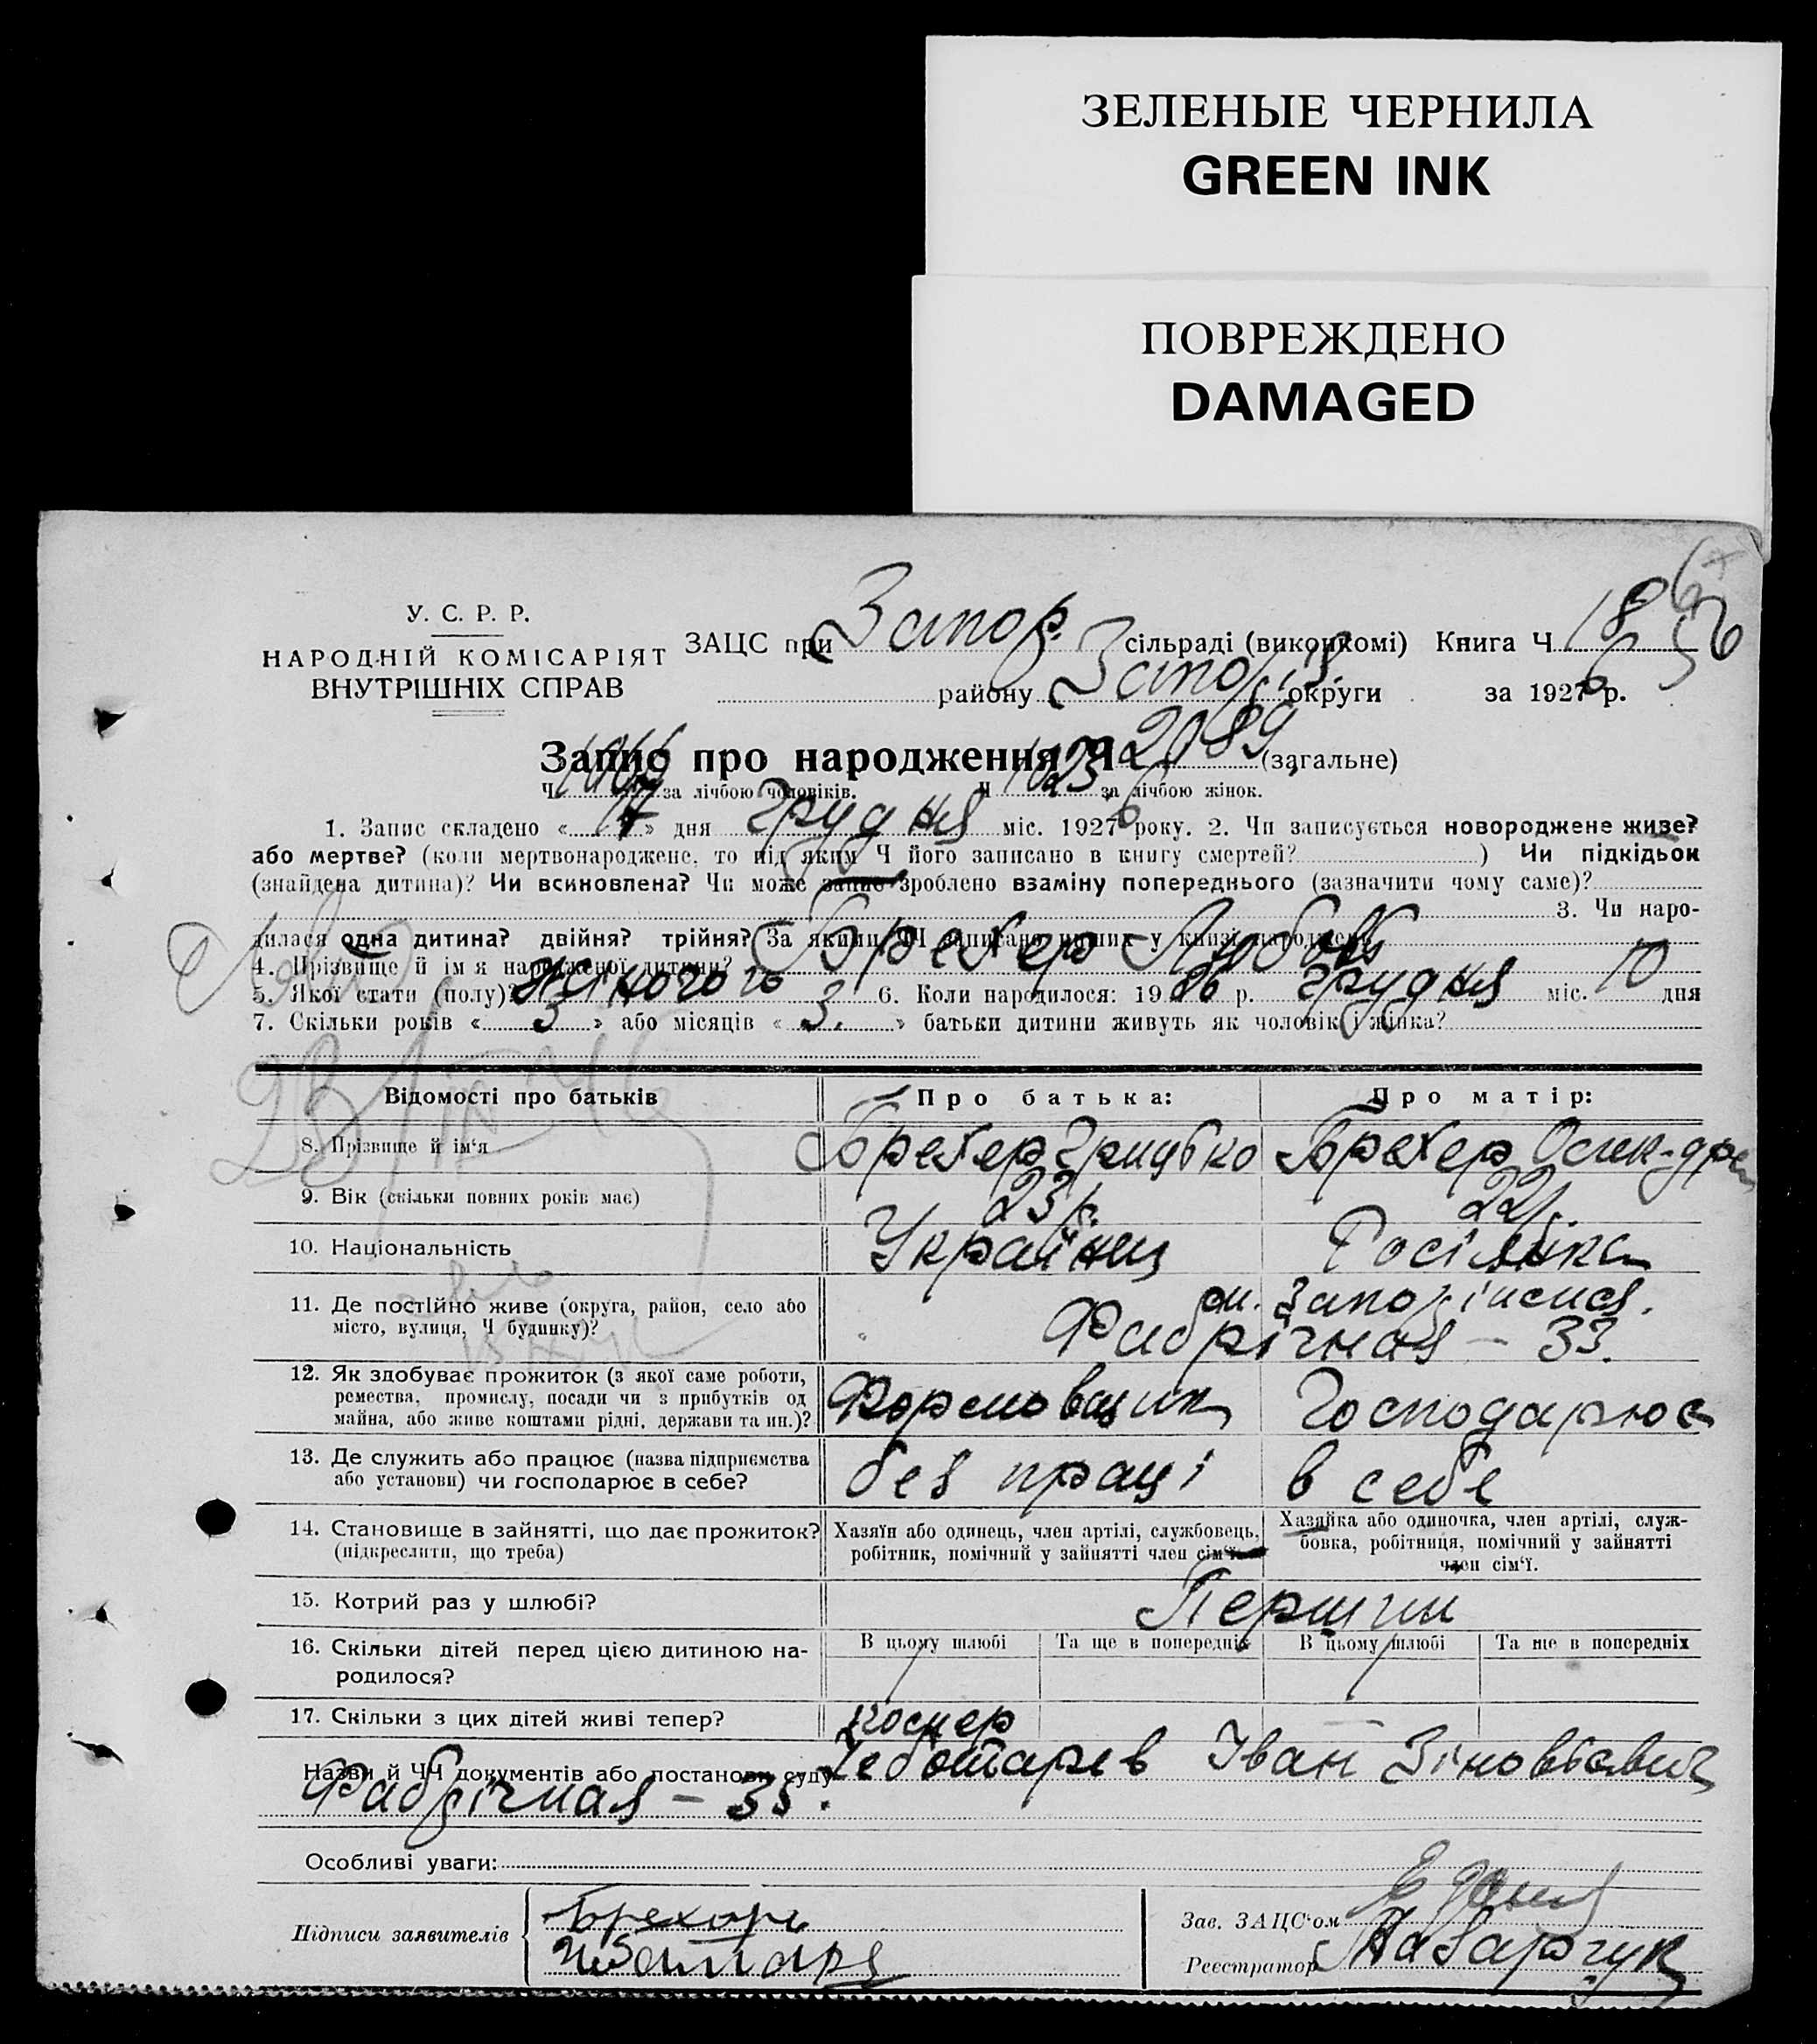 ЗЕЛЕНЫЕ ЧЕРНИЛА
GREEN INK
ПОВРЕЖДЕНО
DAMAGED
У. С. Р. Р.
НАРОДНІЙ КОМІСАРІЯТ
ВНУТРІШНІХ СПРАВ
ЗАЦС при Запор. сільраді (виконкомі) Книга Ч 18
району Запоріз. округи за 1926 р.
Запис про народження Ч 2089 (загальне)
Ч за лічбою чоловіків. Ч 1023 за лічбою жінок.
1. Запис складено « 17 » дня грудня міс. 1926 року. 2. Чи записується новороджене живе?
або мертве? (коли мертвонароджене, то під яким Ч його записано в книгу смертей? ) Чи підкідьок
(знайдена дитина)? Чи всиновлена? Чи може запис зроблено взаміну попереднього (зазначити чому саме)?
3. Чи наро-
дилася одна дитина? двійня? трійня? За якими ЧЧ записано інших у книзі народжень
4. Прізвище й ім'я народженої дитини? Брехер Любовь
5. Якої стати (полу)? жіночого 6. Коли народилося: 1926 р. грудня міс. 10 дня
7. Скільки років « 3 » або місяців « 3. » батьки дитини живуть як чоловік і жінка?
Відомості про батьків Про батька: Про матір:
8. Прізвище й ім'я Брехер Грицько Брехер
9. Вік (скільки повних років має) 23 р. 22 р.
10. Національність Українец Росіявка
11. Де постійно живе (округа, район, село або
місто, вулиця, Ч будинку)? м. Запоріжжя.
Фабрічная – 33.
12. Як здобуває прожиток (з якої саме роботи,
ремества, промислу, посади чи з прибутків од
майна, або живе коштами рідні, держави та ин.)? Формовщик Господарює
13. Де служить або працює (назва підприємства
або установи) чи господарює в себе? без праці в себе
14. Становище в зайнятті, що дає прожиток?
(підкреслити, що треба)
Хазяїн або одинець, член артілі, службовець,
робітник, помічний у зайнятті член сім'ї.
Хазяйка або одиночка, член артілі, служ-
бовка, робітниця, помічний у зайнятті
член сім'ї.
15. Котрий раз у шлюбі? Перший
16. Скільки дітей перед цією дитиною на-
родилося?
В цьому шлюбі Та ще в попередніх В цьому шлюбі Та ще в попередніх
1 1
17. Скільки з цих дітей живі тепер? помер
Назви й ЧЧ документів або постанови суду Чеботарев Іван Зіновієвич
Фабрічная – 35.
Особливі уваги:
Підписи заявителів
Брехарь
Зав. ЗАЦС'ом
Реєстратор Назарчук